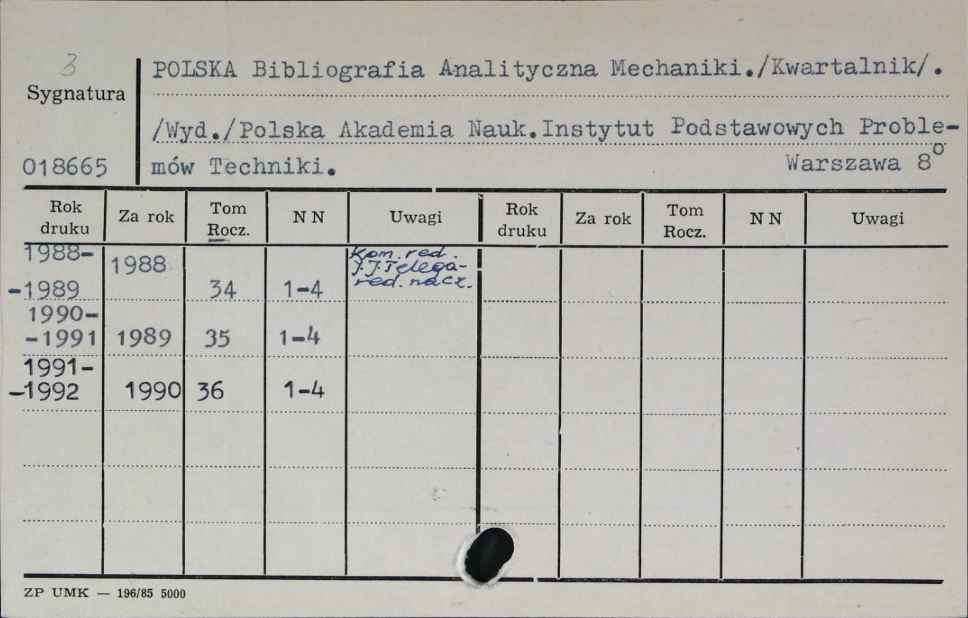 3
Sygnatura
POLSKA Bibliografia Analityczna Mechaniki./Kwartalnik/.
/Wyd./Polska Akademia Nauk.Instytut Podstawowych Proble-
018665 mów Techniki. Warszawa 8°
Rok druku Za rok Tom Rocz. N N Uwagi Rok druku Za rok Tom Rocz. N N Uwagi
1988-
-1989 1988 34 1-4 Kom. red. J.J.Telega- red. nacz.
1990-
-1991 1989 35 1-4
1991-
-1992 1990 36 1-4
ZP UMK — 196/85 5000